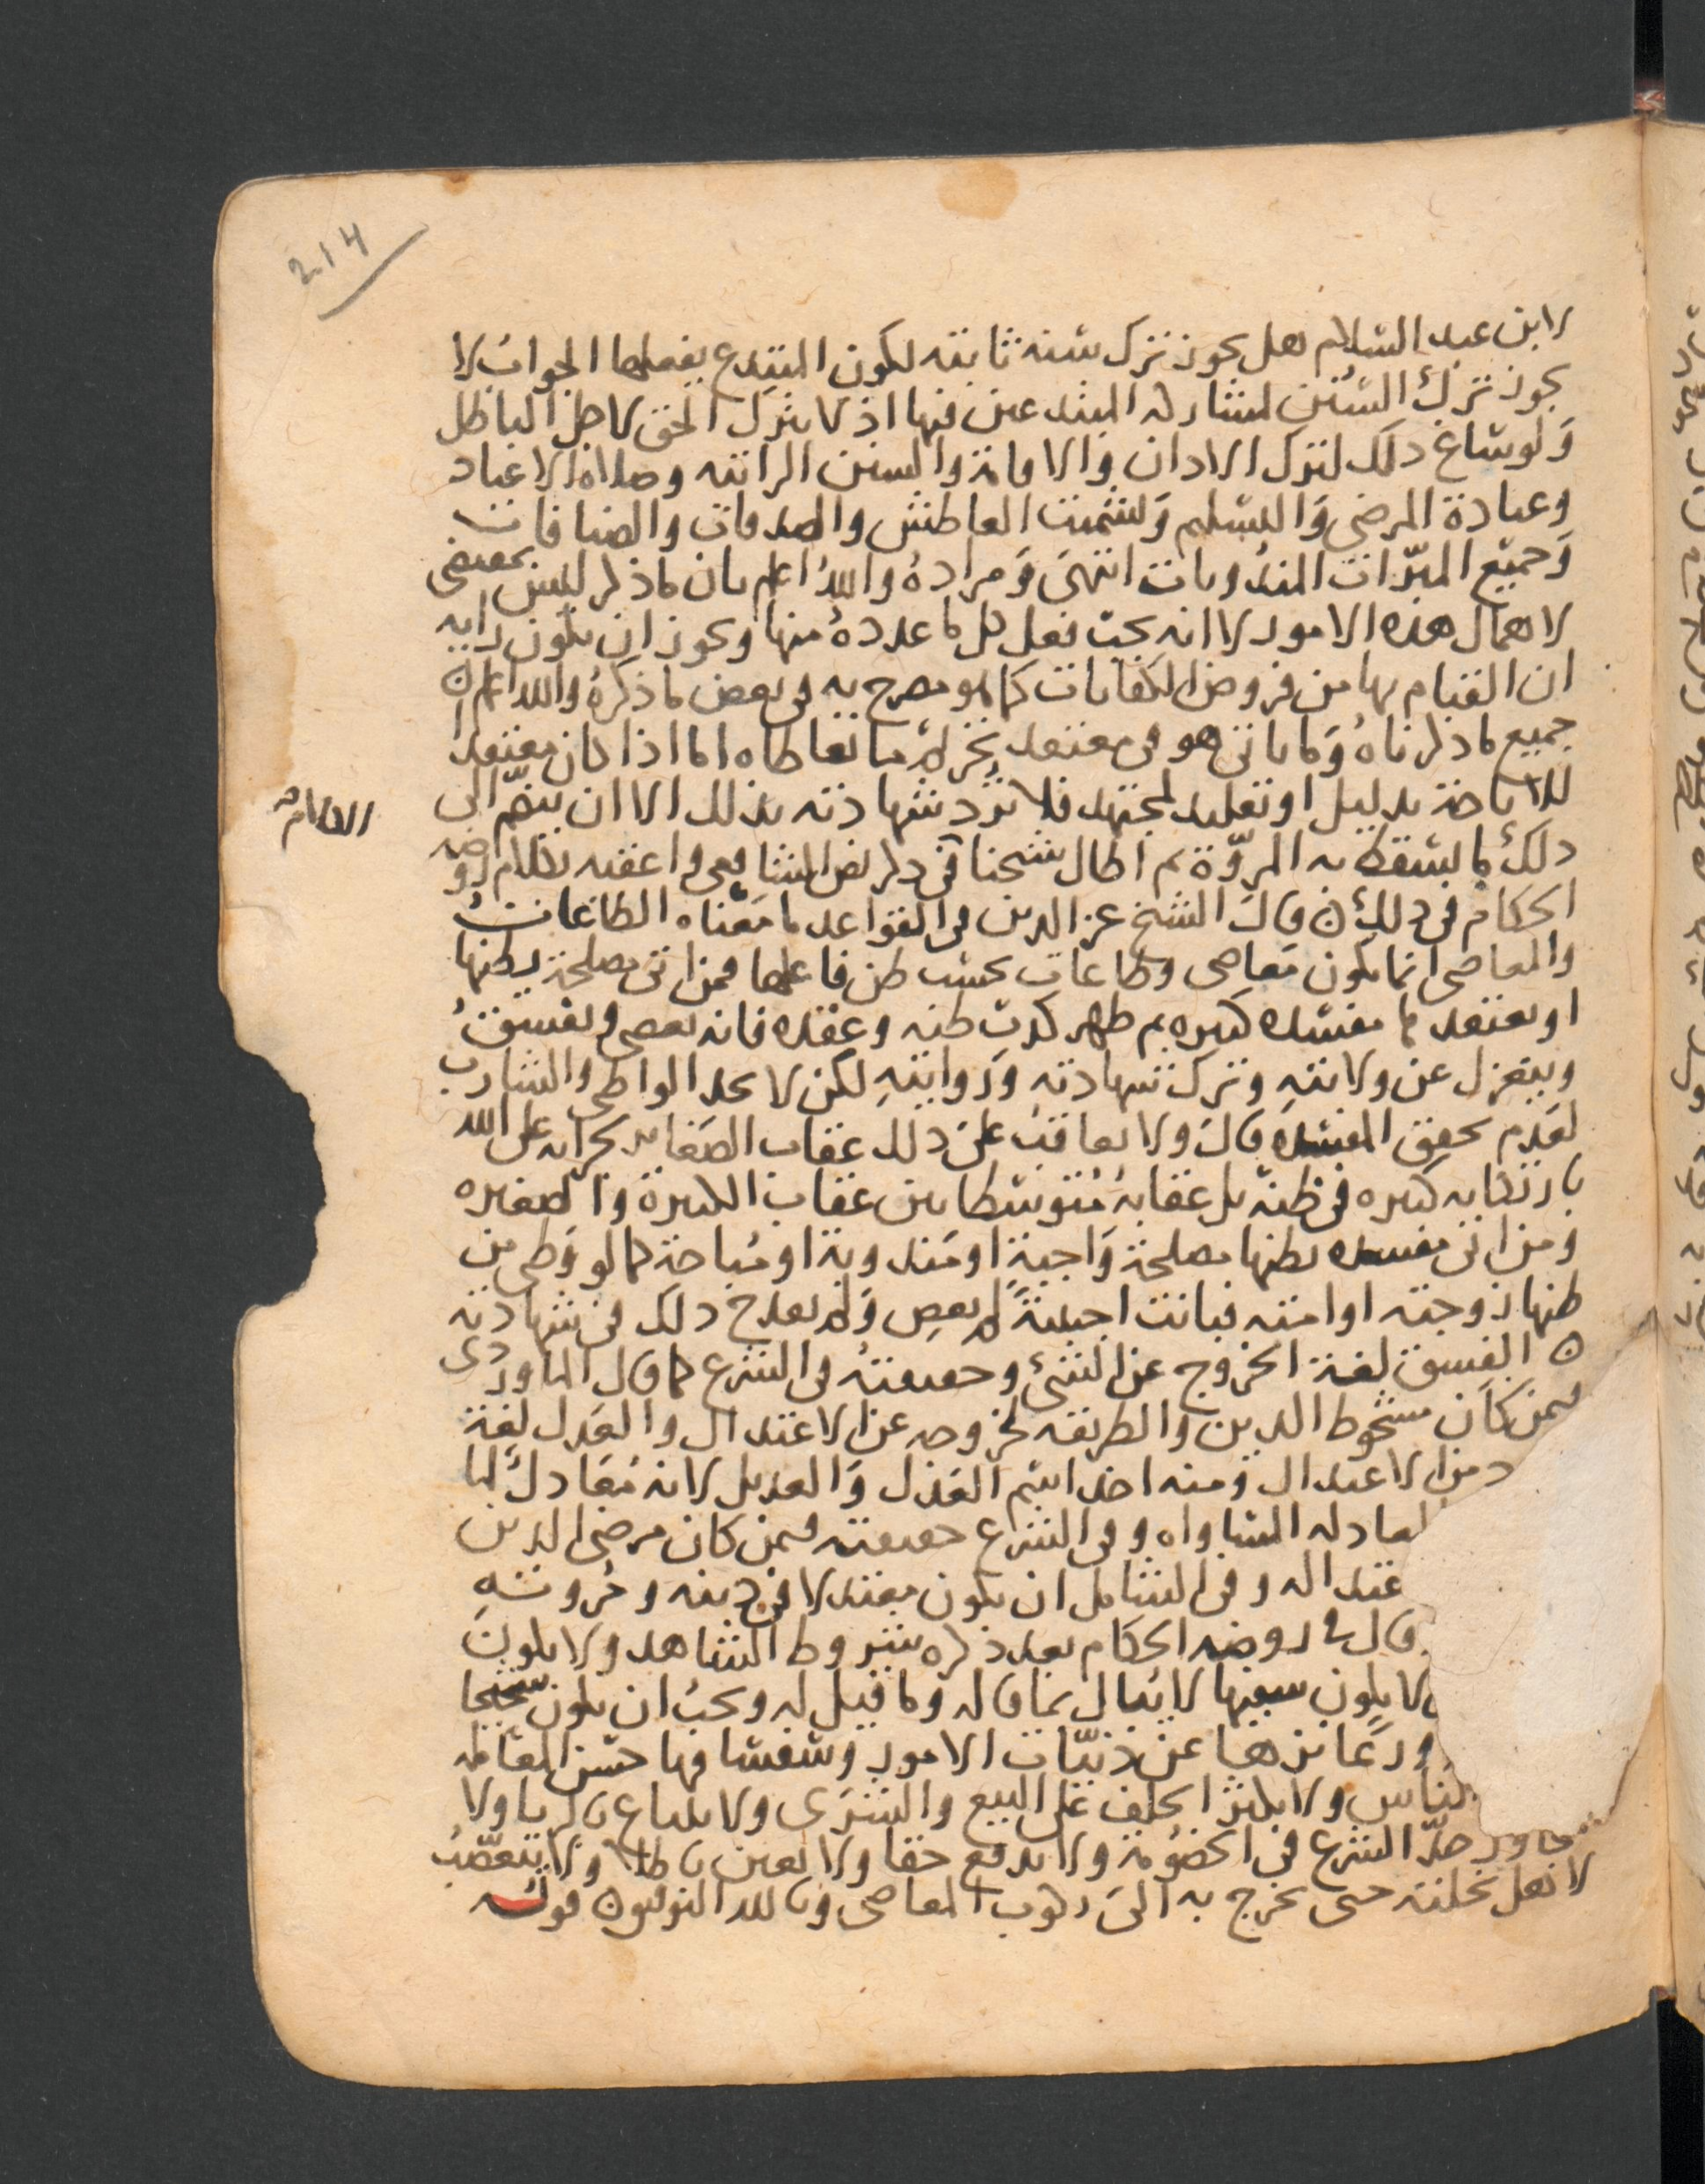 214
لابن عبد السلام هل يجوز ترك سنة ثابته لكون المبتدع يفعلها الجواب لا
يجوز ترك السنن لمشاركه المبتدعين فيها اذ لا يترك الحق لاجل الباطل
ولو ساغ ذلك لترك الاذان والاقامة والسنن الراتبه وصلاة الاعياد
وعيادة المرضى والتسليم وتشميت العاطس والصدقات والضيافات
وجميع المبرات المندوبات انتهى ومراده والله اعلم بان ما ذكر ليس بمقتضى
لاهمال هذه الامور لا انه يجب فعل كل ما عدده منها ويجوز ان يكون رايه
ان القيام بها من فروض الكفايات كما هو مصرح به في بعض ما ذكره والله اعلم ان
جميع ما ذكرناه وما ياتي هو في معتقد تحريم ما تعاطاه اما اذا كان معتقدا
للاباحة بدليل او تقليد لمجتهد فلا ترد شهادته بذلك الا ان ينضم الى
ذلك ما يسقط به المروة ثم اطال شيخنا في ذكر نص الشافعي واعقبه بكلام روضه
الحكام في ذلك ن قال الشيخ عز الدين في القواعد ما معناه الطاعات
والمعاصي انما يكون معاصي وطاعات بحسب ظن فاعلها فمن اتى مصلحة يظنها
او يعتقد ها مفسده كبيره ثم ظهر كذب ظنه وعقده فانه يعصي ويفسق
وينعزل عن ولايته وترك شهادته وروايته لكن لا يحد الواطي والشارب
لعدم تحقق المفسده قال ولا يعاقب على ذلك عقاب الصغاير بجراته على الله
بارتكابه كبيره في ظنه بل عقابه متوسطا بين عقاب الكبيرة والصغيره
ومن اتى مفسده يظنها مصلحة واجبة او مندوبة او مباحة كما لو وطي من
ظنها زوجته او امته فبانت اجنبية لم يعص ولم يقدح ذلك في شهادته
ن الفسق لغة الخروج عن الشيء وحقيقته في الشرع كما قال الماوردي
فيمن كان مسخوط الدين والطريقه لخروجه عن الاعتدال والعدل لغة
من الاعتدال ومنه اخذ اسم العدل والعديل لانه معادل لما
المعادله المساواه وفي الشرع حقيقته فيمن كان مرضي الدين
عتداله وفي الشامل ان يكون معتدلا في دينه ومروته
قال في روضه الحكام بعد ذكره شروط الشاهد ولا يكون
لا يكون سفيها لا يبال بما قاله وما قيل له ويجب ان يكون
ورعا نزها عن دنيات الامور حسن المعامله
الناس ولا يكثر الحلف على البيع والشرى ولا ولا
يجاوز حد الشرع في الخصومة ولا يدفع حقا ولا يعين باطلا ولا يتعصب
لاهل نحلته حتى يخرج به الى ركوب المعاصي وبالله التوفيق قوله